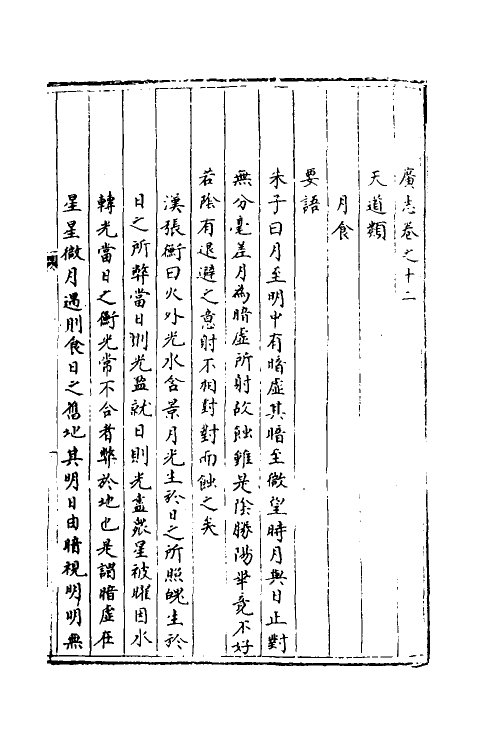 廣志卷之十二
天道類
月食
要語
朱子曰月至明中有暗虛其暗至微望時月與日正對
無分毫差月為暗虛所射故蝕雖是陰勝陽畢竟不好
若陰有退避之意時不相對對而蝕之矣
漢張衡曰火外光水含景月光生於日之所照魄生於
日之所蔽當日則光盈就日則光盡衆星被曜因水
轉光當日之衝光常不合者蔽於地也是謂暗虛在
星星微月過則食日之舊地其明日由暗視明明無